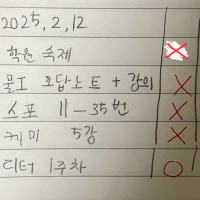 2025, 2, 12
학원 숙제
물I 오답노트 + 강의 X
스포 11-35번 X
케미 5강 X
디터 1주차 O